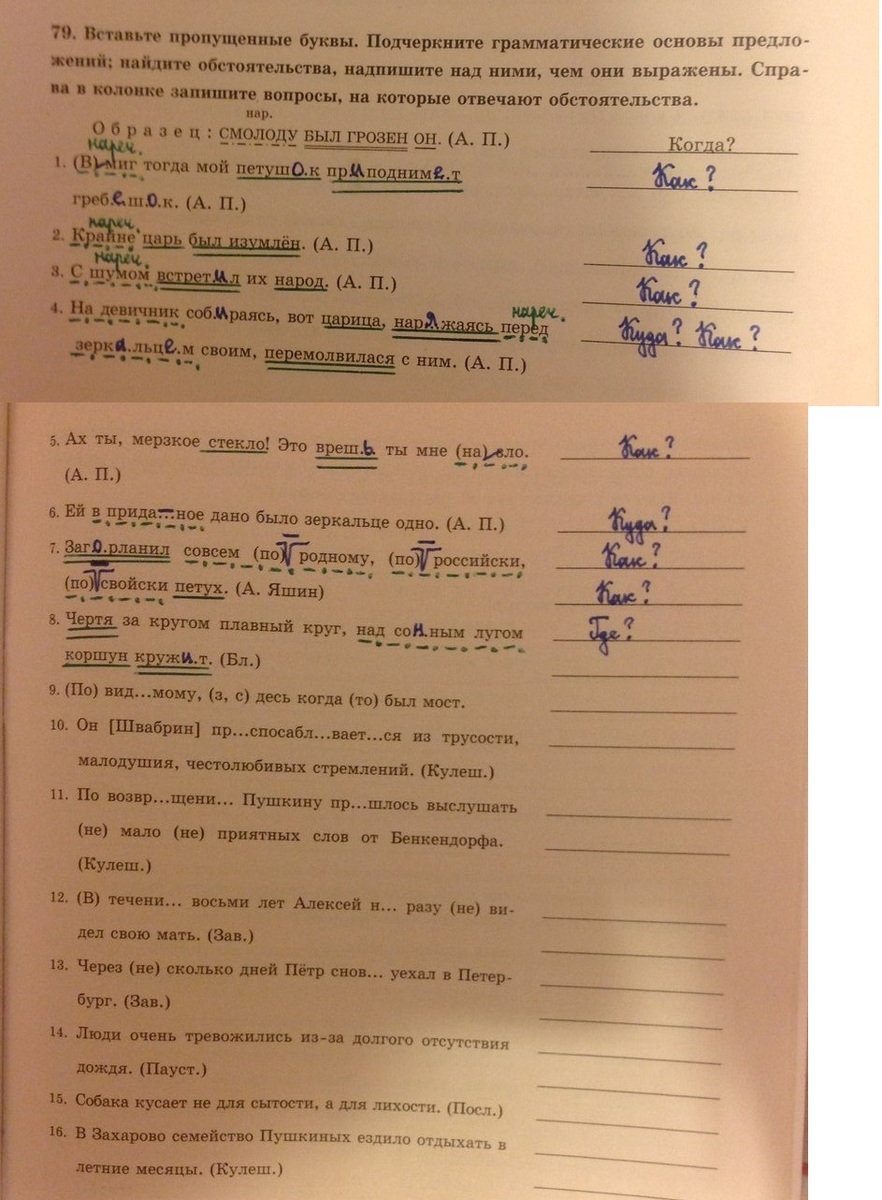 79. Вставьте пропущенные буквы. Подчеркните грамматические основы предло-
жений; найдите обстоятельства, надпишите над ними, чем они выражены. Спра-
ва в колонке запишите вопросы, на которые отвечают обстоятельства.
нар.
Образец: СМОЛОДУ БЫЛ ГРОЗЕН ОН. (А. П.) Когда?
нареч.
1. (В) миг тогда мой петушо.к приподниме.т Как?
гребеш.о.к. (А. П.)
нареч.
2. Крайне царь был изумлён. (А. П.) Как?
нареч.
3. С шумом встретил их народ. (А. П.) Как?
нареч.
4. На девичник собираясь, вот царица, наряжаясь перед Куда? Как?
зерка.льце.м своим, перемолвилася с ним. (А. П.)
5. Ах ты, мерзкое стекло! Это вреш.ь ты мне (на) зло. Как?
(А. П.)
6. Ей в прида...ное дано было зеркальце одно. (А. П.) Куда?
7. Заго.рланил совсем (по)-родному, (по)-российски, Как?
(по)-свойски петух. (А. Яшин) Как?
8. Чертя за кругом плавный круг, над сон.ным лугом Где?
коршун кружи.т. (Бл.)
9. (По) вид...мому, (з, с) десь когда (то) был мост.
10. Он [Швабрин] пр...спосабл...вает...ся из трусости,
малодушия, честолюбивых стремлений. (Кулеш.)
11. По возвр...щени... Пушкину пр...шлось выслушать
(не) мало (не) приятных слов от Бенкендорфа.
(Кулеш.)
12. (В) течени... восьми лет Алексей н... разу (не) ви-
дел свою мать. (Зав.)
13. Через (не) сколько дней Пётр снов... уехал в Петер-
бург. (Зав.)
14. Люди очень тревожились из-за долгого отсутствия
дождя. (Пауст.)
15. Собака кусает не для сытости, а для лихости. (Посл.)
16. В Захарово семейство Пушкиных ездило отдыхать в
летние месяцы. (Кулеш.)